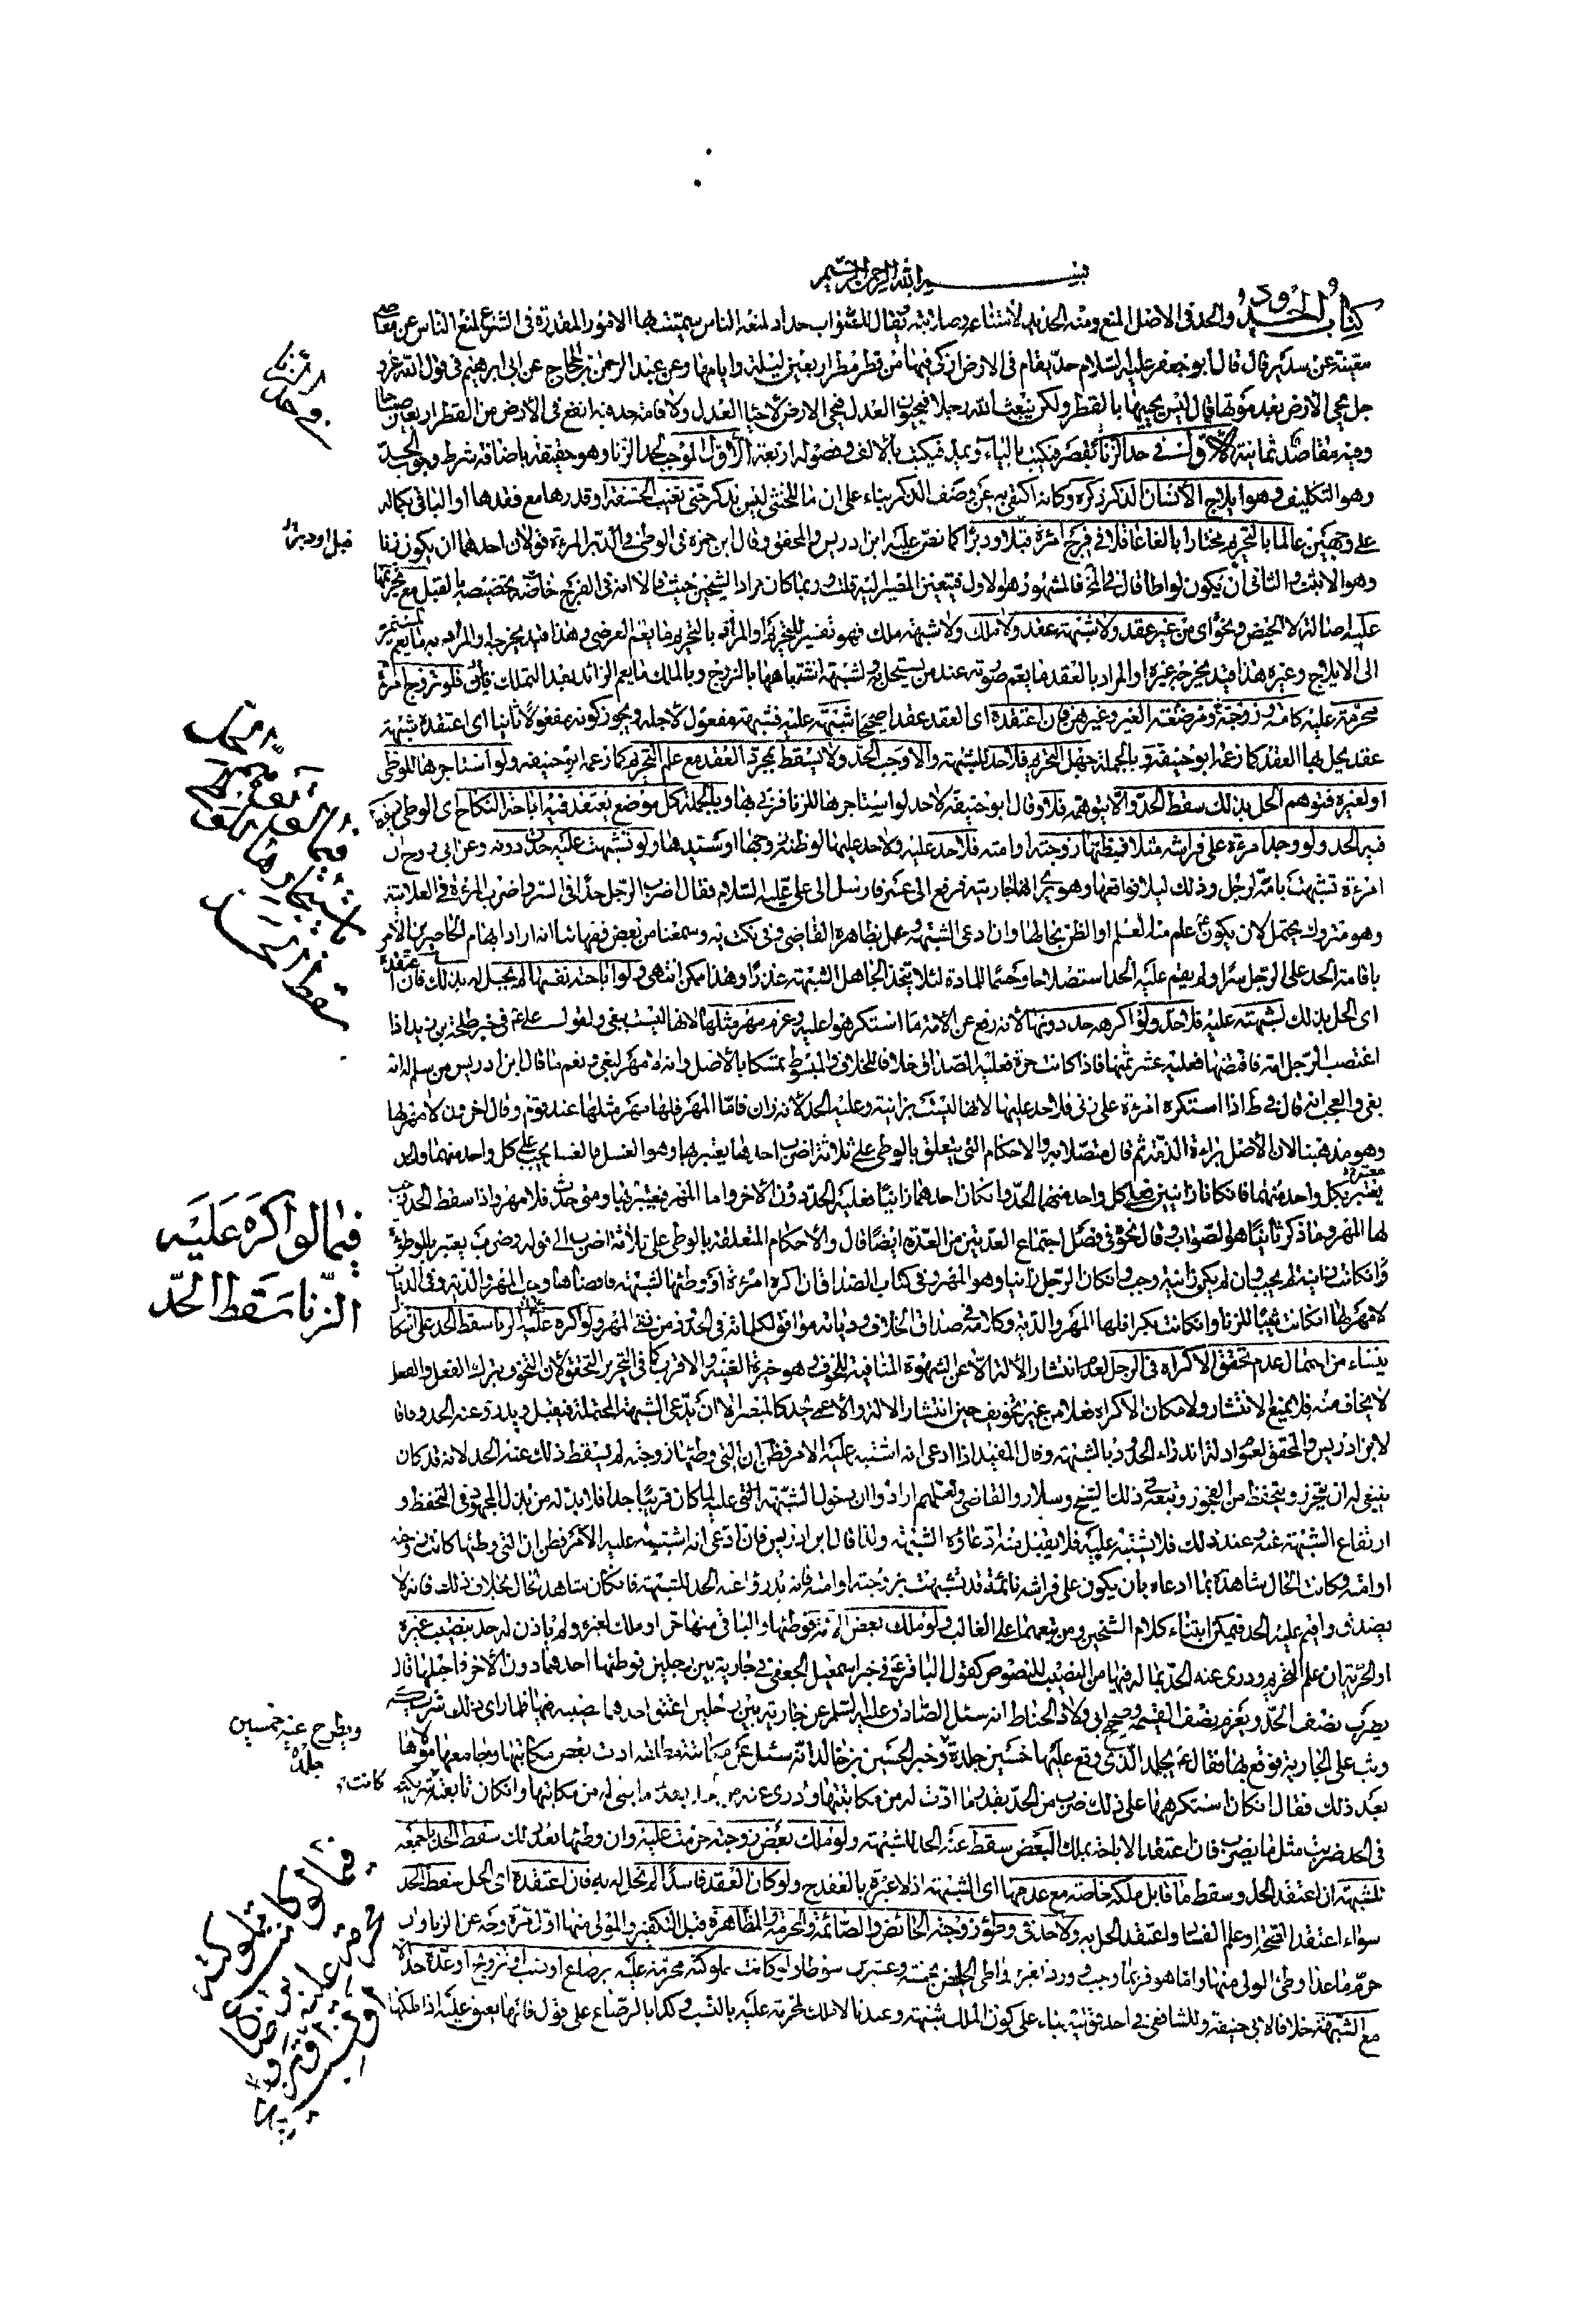 بسم الله الرحمن الرحيم
كتاب الحدود والحد في الاصل المنع ومنه الحديد لامتناعه وصلابته ويقال للبواب حداد لمنعه الناس سميت بها الامور المقدرة في الشرع لمنع الناس عن معاصي
معينة عن سدير قال قال ابو جعفر عليه السلام حد يقام في الارض ازكى فيها من قطر مطر اربعين ليلة وايامها وعن عبد الرحمن بن الحجاج عن ابي ابرهيم في قول الله عز و
جل يحيى الارض بعد موتها قال ليس يحييها بالقطر ولكن يبعث الله رجلا فيحيون العدل فتحيى الارض لاحياء العدل ولاقامة حد فيه انفع في الارض من القطر اربعين صباحا
وفيه مقاصد ثمانية الاول في حد الزنا يقصر فيكتب بالياء ويمد فيكتب بالالف وفصوله اربعة الاول الموجب لحد الزنا وهو حقيقته باضافة شرط وجوب الحد
وهو التكليف وهو ايلاج الانسان الذكر ذكره وكانه اكتفى به عن وصف الذكر بناء على ان ما للخنثى ليس بذكر حتى تغيب الحشفة او قدرها مع فقدها او الباقي بكماله
على وجهين عالما بالتحريم مختارا بالغا عاقلا في فرج امرئة قبلا او دبرا كما نص عليه ابن ادريس والمحقق وقال ابن حمزة في الوطي في دبر المرءة قولان احدهما ان يكون زنا
وهو الاثبت والثاني ان يكون لواطا قال في المخ فالمشهور هو الاول فيتعين المصير اليه قلت وربما كان مراد الشيخين حيث قالا انه في الفرج خاصة تخصيصه بالقبل مع تحريمها
عليه اصالة لا لحيض ونحوه اى من غير عقد ولا شبهة عقد ولا ملك ولا شبهة ملك فهو تفسير للتحريم او المراد بالتحريم ما يعم العرضي وهذا قيد يخرجه او المراد به ما يعم المستمر
الى الايلاج وغيره هذا قيد يخرج غيره او المراد بالعقد ما يعم صورته عند من يستحل به ولشبهة اشتباهها بالزوج وبالملك ما يعم الزائد بعد التملك فلو تزوج امرئة
محرمة عليه كامه وزوجة ومرضعة الغير وغيرهن فان اعتقده اى العقد عقدا صحيحا شبهة عليه فشبهة مفعول لاجله ويجوز كونه مفعولا ثانيا اى اعتقده شبهة
عقد يحل بها العقد كما زعمه ابو حنيفة وبالجملة جهل التحريم فلا حد للشبهة والا وجب الحد ولا يسقط بمجرد العقد مع علم التحريم كما زعمه ابو حنيفة ولو استاجرها للوطي
او لغيره فتوهم الحل بذلك سقط الحد والا يتوهمه فلا وقال ابو حنيفة لا حد لو استاجرها للزنا فزنى بها وبالجملة كل موضع يعتقد فيه اباحة النكاح اى الوطي يسقط
فيه الحد ولو وجد امرءة على فراشه مثلا فظنها زوجته او امته فلا حد عليه ولا حد عليها لو ظنته زوجها او سيدها ولو تشبهت عليه حدت دونه وعن ابي روح ان
امرءة تشبهت بامة لرجل وذلك ليلا فواقعها وهو يرى انها جاريته فرفع الى عمر فارسل الى علي عليه السلام فقال اضرب الرجل حدا في السر واضرب المرءة في العلانية
وهو متروك يحتمل لان يكون ع علم منه العلم او الظن بحالها وان دعى الشبهة وعمل بظاهره القاضي وفي نكت يه وسمعنا من بعض فقهائنا انه اراد ايهام الحاضرين الامر
باقامة الحد على الرجل سرا ولم يقم عليه الحد استصلاحا وحسما للمادة لئلا يتخذ الجاهل الشبهة عذرا وهذا ممكن انتهى ولو اباحته نفسها لم يحل له بذلك فان اعتقده
اى الحل بذلك لشبهة عليه فلا حد ولو اكرهه حد دونها لانه رفع عن الامة ما استكرهوا عليه وغرم مهر مثلها لانها ليست ببغي ولقول علي ع في خبر طلحة بن زيد اذا
اغتصب الرجل امة فاقتضها فعليه عشر ثمنها فاذا كانت حرة فعليه الصداق خلافا للخلاف والمبسوط تمسكا بالاصل وانه لا مهر لبغي ونعم ما قال ابن ادريس من سلم له انها
بغي والعجب انه قال في ط اذا استكره امرءة على زنى فلا حد عليها لانها ليست بزانية وعليه الحد لانه زان فاما المهر فلها مهر مثلها عند قوم وقال اخرون لا مهر لها
وهو مذهبنا لان الاصل براءة الذمة ثم قال متصلا به والاحكام التي يتعلق بالوطي على ثلاثة اضرب احدها يعتبر بها وهو الغسل فالغسل يجب على كل واحد منهما والحد
يعتبر بكل واحد منهما فان كانا زانيين فعلى كل واحد منهما الحد وان كان احدهما زانيا فعليه الحد دون الاخر واما المهر فمعتبر بها ومتى حدت فلا مهر واذا سقط الحد وجب
لها المهر وما ذكر ثانيا هو الصواب وقال نحوه في فصل اجتماع العدتين من العدد ايضا قال والاحكام المتعلقة بالوطي على ثلاثة اضرب الى قوله وضرب يعتبر بالموطوءة
وانكانت زانية لم يجب وان لم يكن زانية وجب وانكان الرجل زانيا وهو المهر وفي كتاب الصداق فان اكره امرءة او وطئها لشبهة فافضاها وجب المهر والدية وفي الديات
لا مهر لها انكانت ثيبا للزنا وانكانت بكرا فلها المهر والدية وكلامه في صداق الخلاف ودياته موافق لكلامه في الحدود من نفي المهر ولو اكره على الزنا سقط الحد على اشكال
ينشاء من احتمال عدم تحقق الاكراه في الرجل لعدم انتشار الالة الا عن الشهوة المنافية للخوف وهو خيرة الغنية والاقرب كما في التحرير التحقق لان التخويف بترك الفعل والفعل
لا يخاف منه فلا يمنع الانتشار ولامكان الاكراه فعلا من غير تخويف حين انتشار الالة والاعمى يحد كالمبصر الا ان يدعى الشبهة المحتملة فيقبل ويدرؤ عنه الحد وفاقا
لابن ادريس والمحقق لعموم ادلة اندراء الحدود بالشبهة وقال المفيد اذا ادعى انه اشتبه عليه الامر فظن ان التي وطئها زوجته لم يسقط ذلك عنه الحد لانه قد كان
ينبغي له ان يتحرز ويتحفظ من الفجور وتبعه على ذلك الشيخ وسلار والقاضي ولعلهم ارادوا ان دخول الشبهة التي عليه لما كان قريبا جدا فلا بد له من بذل المجهود في التحفظ و
ارتفاع الشبهة عنه وعند ذلك فلا يشتبه عليه فلا يقبل منه ادعاؤه الشبهة ولذا قال ابن ادريس فان ادعى انه اشتبه عليه الامر فظن ان التي وطئها كانت زوجته
او امته وكانت الحال شاهدة بما ادعاه بان يكون على فراشه نائمة قد تشبهت بزوجته او امته فانه يدرؤا عنه الحد للشبهة فانكان شاهد الحال بخلاف ذلك فانه لا
يصدق واقيم عليه الحد فيمكن ابتناء كلام الشيخين ومن تبعهما على الغالب ولو ملك بعض الامة فوطئها والباقي منها حر او ملك لغيره ولم ياذن له حد بنصيب غيره
او الحرية ان علم التحريم ودرى عنه الحد بماله فيها من النصيب للنصوص كقول الباقر ع في خبر اسمعيل الجعفي في جارية بين رجلين فوطئها احدهما دون الاخر فاحبلها قال
يضرب نصف الحد ويغرم نصف القيمة وصحيح ابي ولاد الحناط انه سئل الصادق عليه السلم عن جارية بين رجلين اعتق احدهما نصيبه منها فلما راى ذلك شريكه
وثب على الجارية فوقع بها فقال ع يجلد الذي وقع عليها خمسين جلدة وخبر الحسين بن خالد انه سئل عن مكاتبة مطلقة ادت بعض مكاتبتها وجامعها مولاها
بعد ذلك فقال ان كان استكرهها على ذلك ضرب من الحد بقدر ما ادت له من مكاتبتها ودرى عنه من الحد بقدر ما بقي له من مكاتبتها وانكان تابعته كانت شريكته
في الحد ضربت مثل ما يضرب فان اعتقد الاباحة بملك البعض سقط عنه الحد للشبهة ولو ملك بعض زوجته حرمت عليه وان وطئها بعد ذلك سقط الحد باجمعه
للشبهة ان اعتقد الحل وسقط ما قابل ملكه خاصة مع عدمها اى الشبهة اذ لا عبرة بالعقد ح ولو كان العقد فاسدا لم يحل له به فان اعتقده اى الحل سقط الحد
سواء اعتقد الصحة او علم الفساد واعتقد الحل به ولا حد في وطؤ زوجته الحائض والصائمة والمحرمة والمظاهرة قبل التكفير والمولى منها
مع الشبهة خلافا لابي حنيفة وللشافعي في احد قوليه بناء على كون الملك شبهة وعندنا لا ملك لمحرمة عليه بالنسب وكذا بالرضاع على قول فانها يعتق عليه اذا ملكها
قبل او دبرا
فيما لو اكره عليه
الزنا سقط الحد
ويطرح عنه خمسين
جلدة
فيما لو كانت مملوكته
محرمة عليه برضاع